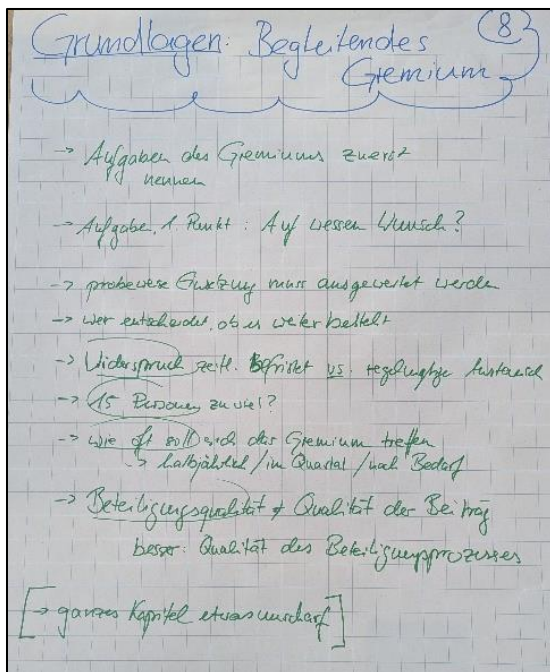 Grundlagen: Begleitendes (8)
Gremium
-> Aufgaben des Gremiums zuerst
nennen
-> Aufgabe, 1. Punkt: Auf wessen Wunsch?
-> probeweise Einsetzung muss ausgewertet werden
-> wer entscheidet, ob es weiter besteht
-> Widerspruch zeitl. Befristet vs. regelmäßige Austausch
-> 15 Personen zu viel?
-> wie oft soll sich das Gremium treffen
-> halbjährlich / im Quartal / nach Bedarf
-> Beteiligungsqualität ≠ Qualität der Beiträg
besser: Qualität des Beteiligungsprozesses
[-> ganzes Kapitel etwas unscharf]